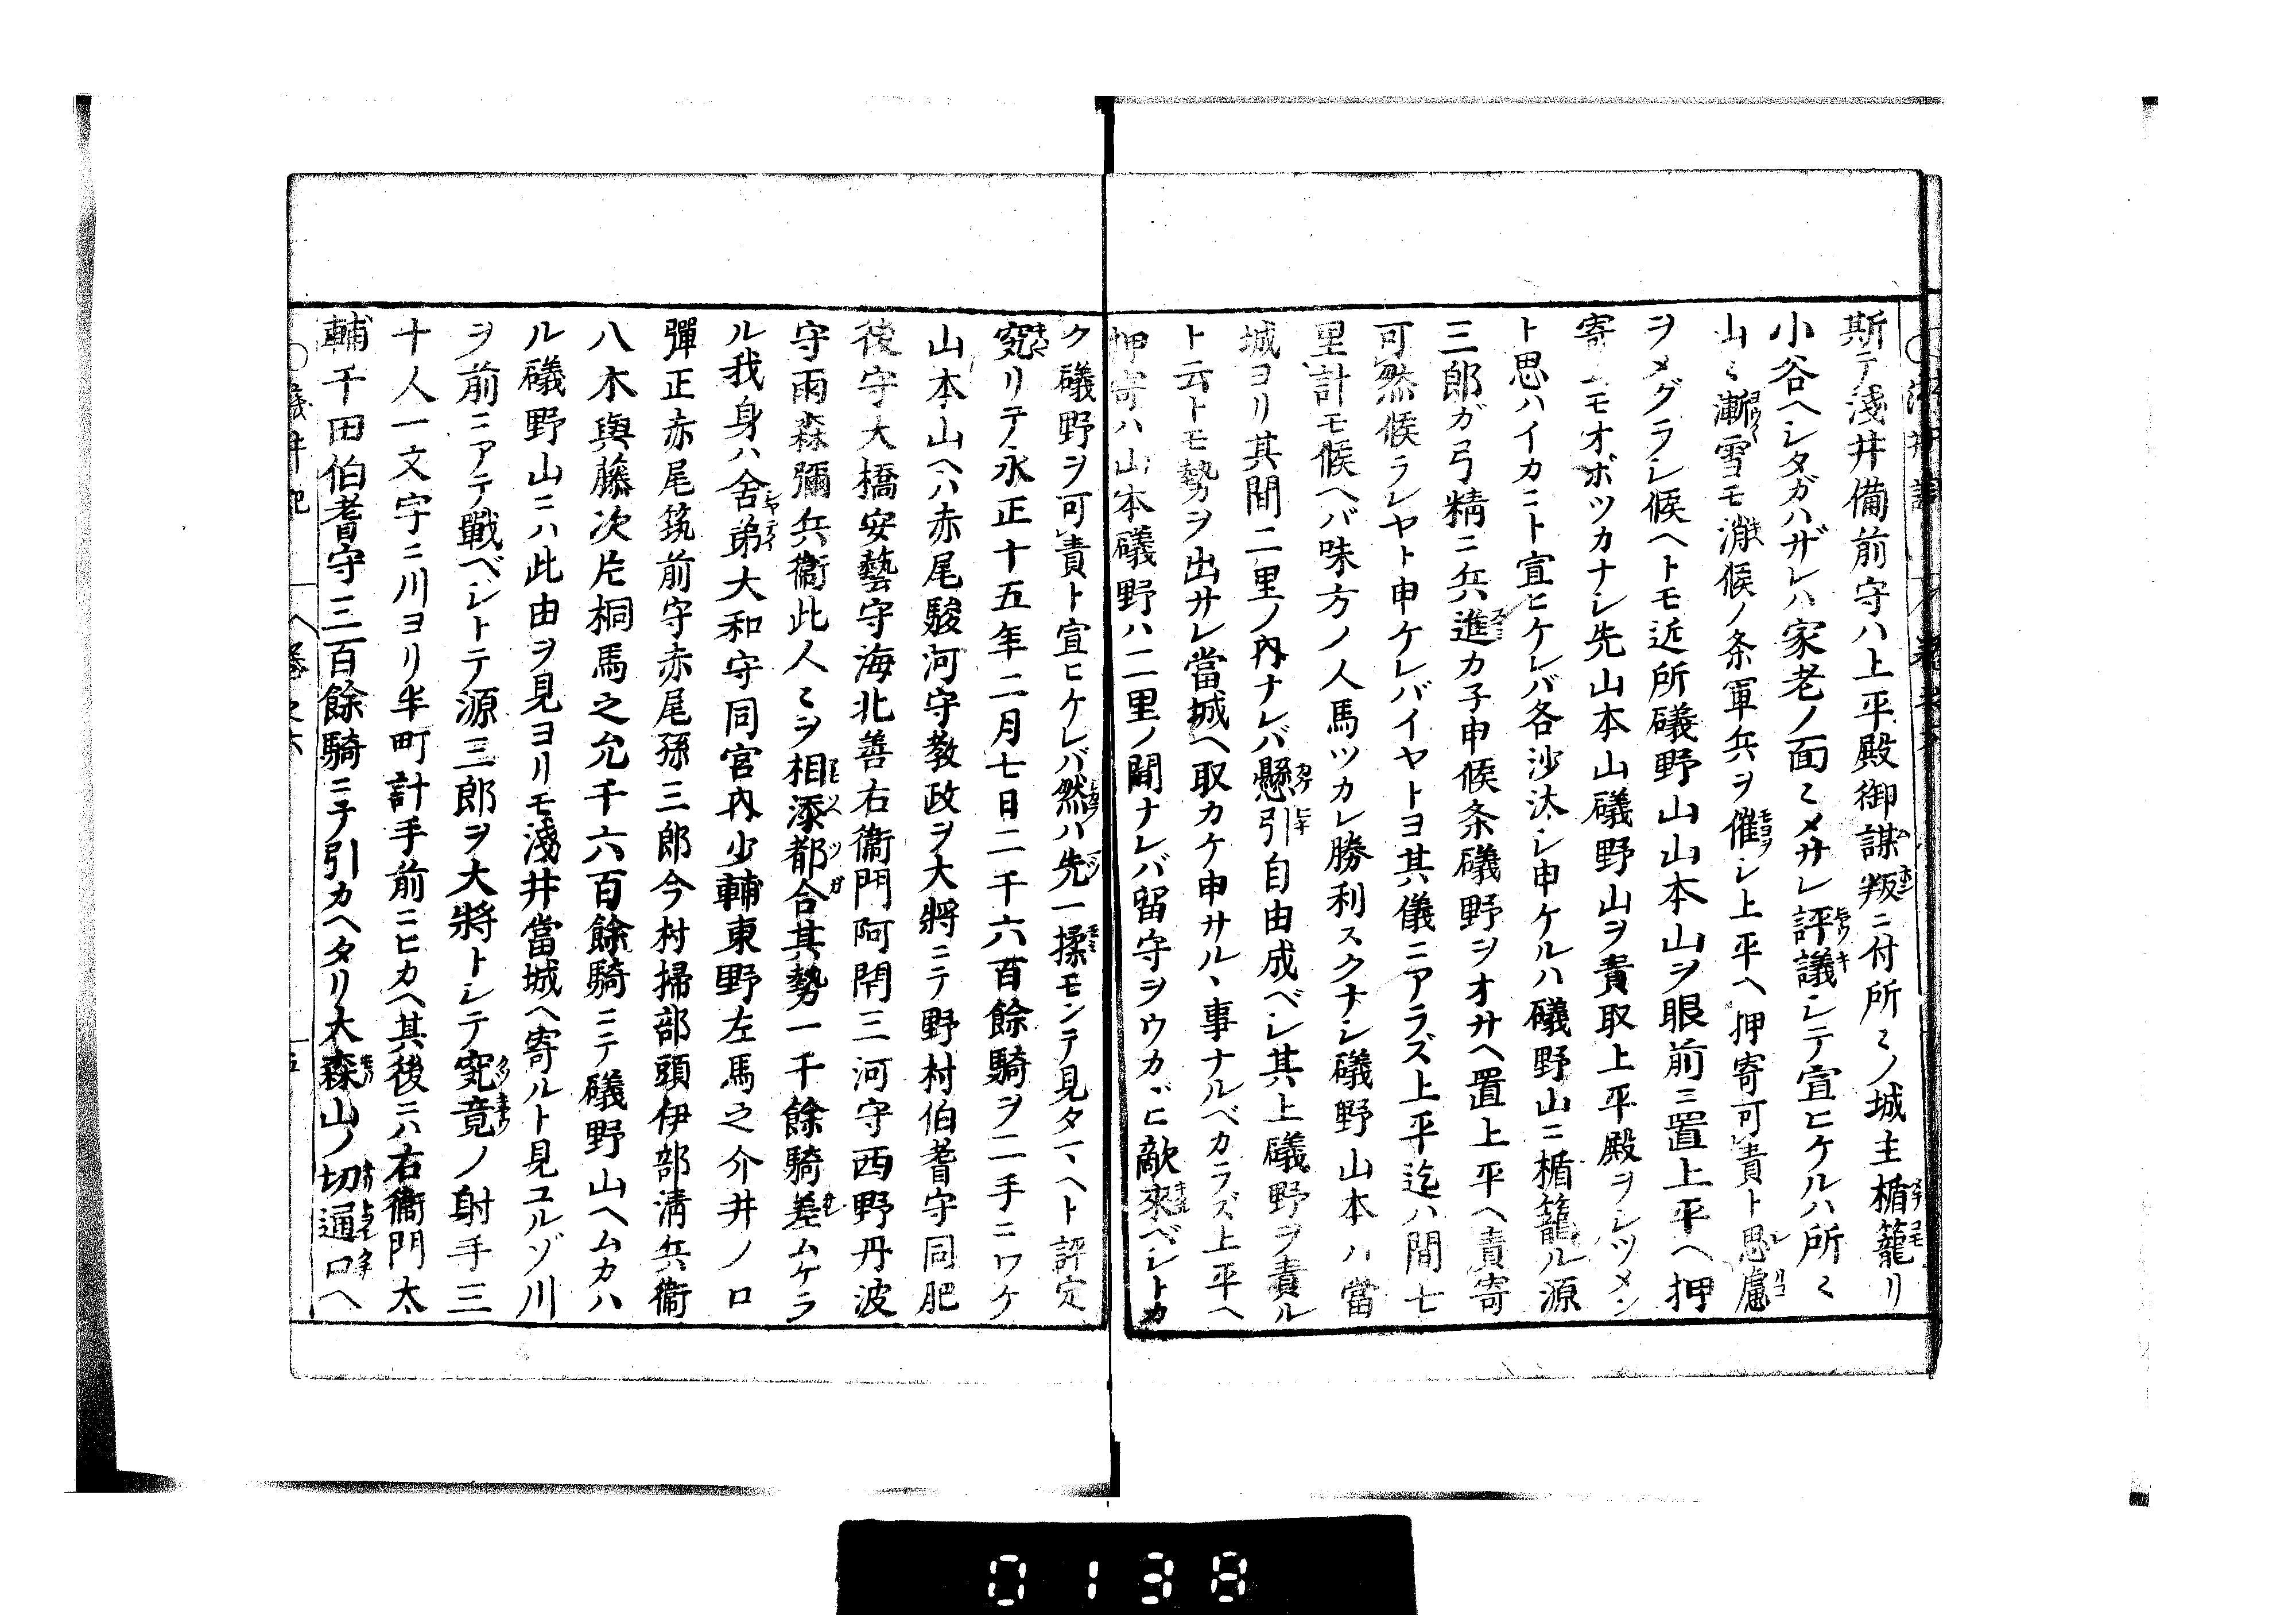 斯テ淺井備前守ハ上平殿御謀叛ニ付所〻ノ城主楯籠リ
小谷ヘシタガハザレハ家老ノ面〻メサレ評議シテ宣ヒケルハ所〻
山〻漸雪モ消候ノ条軍兵ヲ催シ上平ヘ押寄可責ト思慮
ヲメグラシ候ヘトモ近所礒野山山本山ヲ眼前ニ置上平ヘ押
寄ニモオボツカナシ先山本山礒野山ヲ責取上平殿ヲシツメン
ト思ハイカニト宣ヒケレバ各沙汰シ申ケルハ礒野山ニ楯籠ル源
三郎ガ弓精ニ兵進カ子申候条礒野ヲオサヘ置上平ヘ責寄
可然候ラレヤト申ケレバイヤトヨ其儀ニアラズ上平迄ハ間七
里計モ候ヘバ味方ノ人馬ツカレ勝利スクナシ礒野山本ハ當
城ヨリ其間二里ノ內ナレバ懸引自由成ベシ其上礒野ヲ責ル
ト云トモ勢ヲ出サレ當城ヘ取カケ申サル丶事ナルベカラズ上平ヘ
押寄ハ山本礒野ハ二里ノ間ナレバ留守ヲウカヾヒ敵來ベシトカ
ク礒野ヲ可責ト宣ヒケレバ然ハ先一揉モンテ見タマヘト評定
究リテ永正十五年二月七日二千六百餘騎ヲ二手ニワケ
山本山ヘハ赤尾駿河守教政ヲ大將ニテ野村伯耆守同肥
後守大橋安藝守海北善右衞門阿閉三河守西野丹波
守雨森彌兵衞此人〻ヲ相添都合其勢一千餘騎差ムケラ
ル我身ハ舍弟大和守同宮內少輔東野左馬之介井ノ口
彈正赤尾筑前守赤尾孫三郎今村掃部頭伊部淸兵衞
八木與藤次片桐馬之允千六百餘騎ニテ礒野山ヘムカハ
ル礒野山ニハ此由ヲ見ヨリモ淺井當城ヘ寄ルト見ユルゾ川
ヲ前ニアテ戰ベシトテ源三郎ヲ大將トシテ究竟ノ射手三
十人一文字ニ川ヨリ半町計手前ニヒカヘ其後ニハ右衞門太
輔千田伯耆守三百餘騎ニテ引カヘタリ大森山ノ切通口ヘ
0138